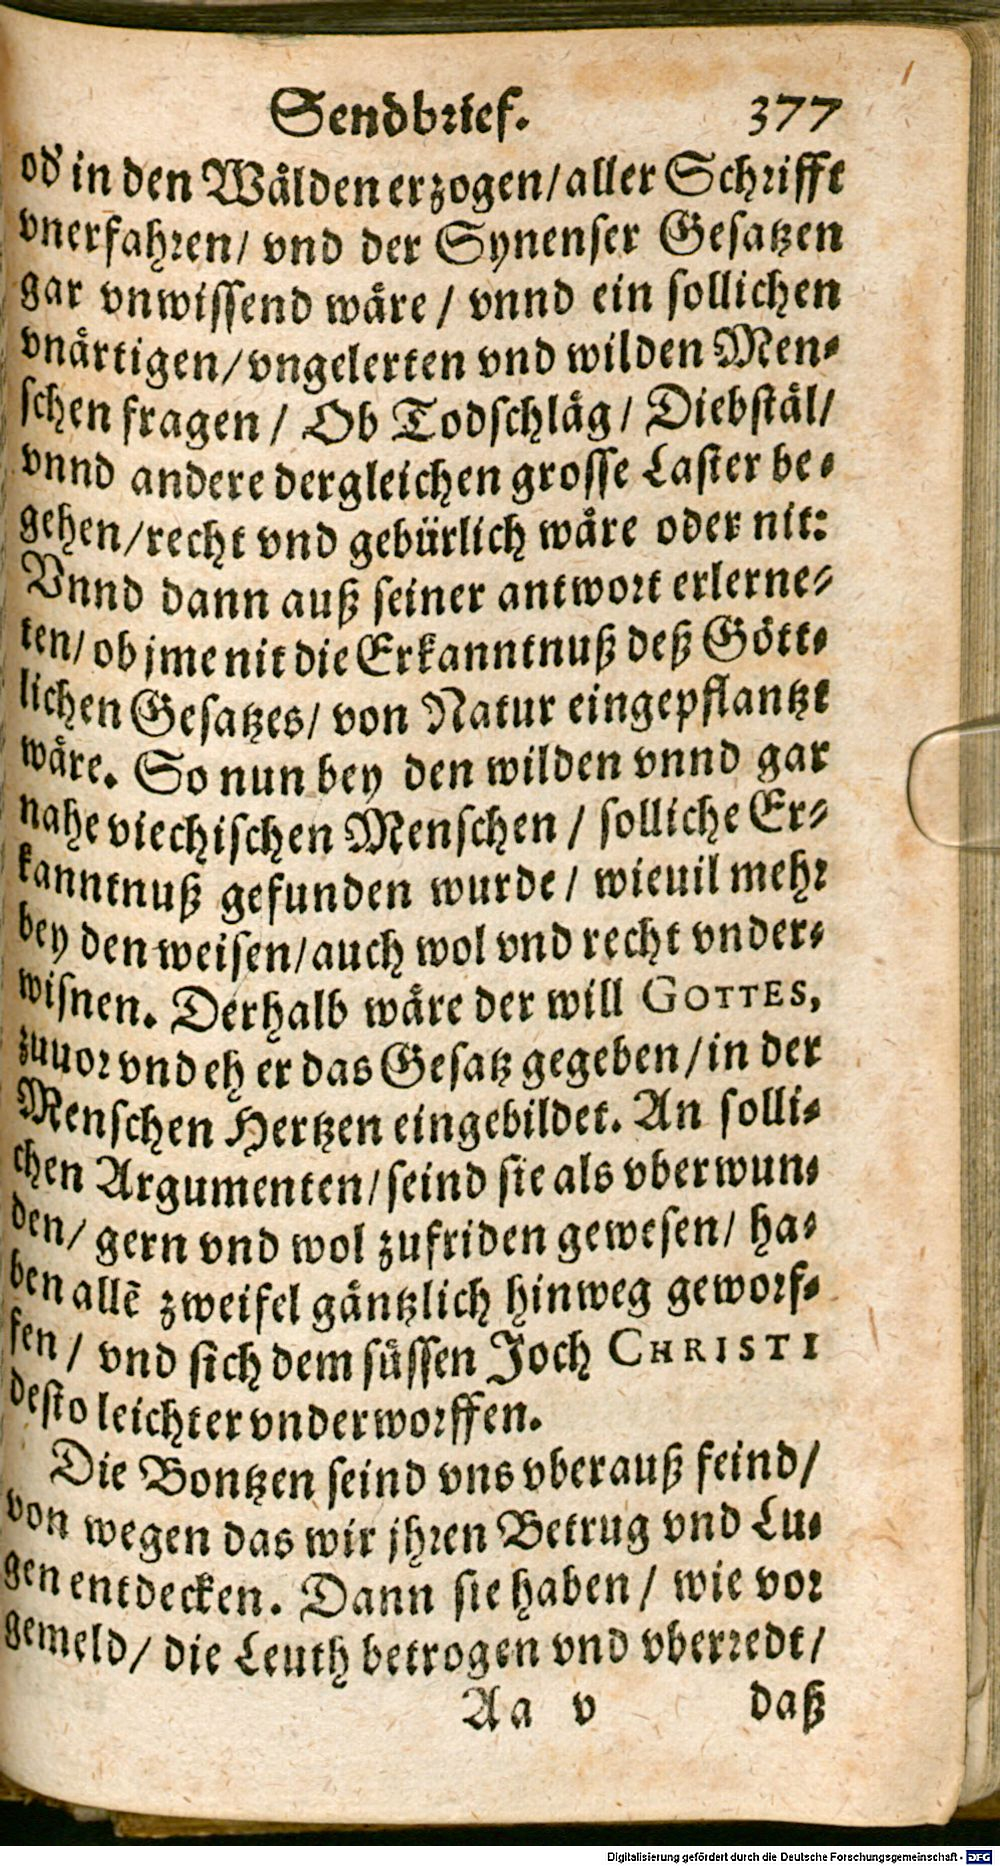 Sendbrief. 377
od' in den Wålden erzogen/aller Schrifft
vnerfahren/ vnd der Synenser Gesatzen
gar vnwissend wåre / vnnd ein sollichen
vnårtigen/vngelerten vnd wilden Men-
schen fragen / Ob Todschlåg/ Diebstål/
vnnd andere dergleichen grosse Laster be-
gehen/recht vnd gebürlich wåre oder nit:
Vnnd dann auß seiner antwort erlerne-
ten/ ob jme nit die Erkanntnuß deß Gött-
lichen Gesatzes/ von Natur eingepflantzt
wåre. So nun bey den wilden vnnd gar
nahe viechischen Menschen / solliche Er-
kanntnuß gefunden wurde/ wieuil mehr
bey den weisen/auch wol vnd recht vnder-
wisnen. Derhalb wåre der will GOTTES,
zuuor vnd eh er das Gesatz gegeben/in der
Menschen Hertzen eingebildet. An solli-
chen Argumenten/seind sie als vberwun-
den/ gern vnd wol zufriden gewesen/ ha-
ben allē zweifel gäntzlich hinweg geworf-
fen / vnd sich dem süssen Joch CHRISTI
desto leichter vnderworffen.
Die Bontzen seind vns vberauß feind/
von wegen das wir jhren Betrug vnd Lu-
gen entdecken. Dann sie haben/ wie vor
gemeld/ die Leuth betrogen vnd vberredt/
Aa v daß
Digitalisierung gefördert durch die Deutsche Forschungsgemeinschaft - DFG